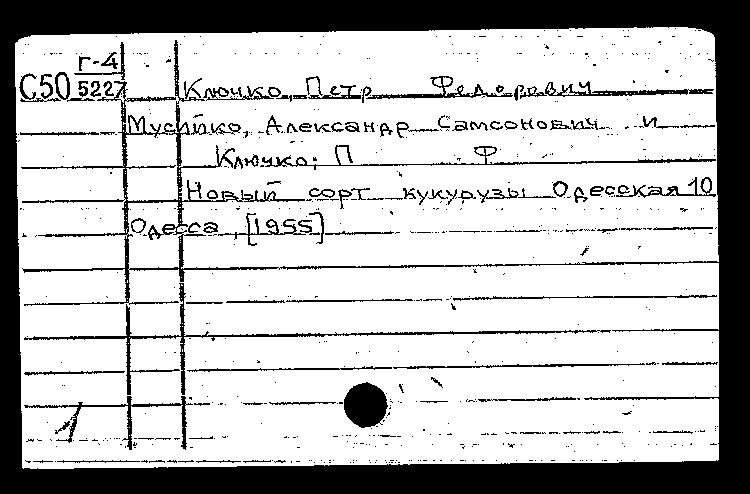 Г-4
С50 5227 Ключко, Петр Федорович
Мусийко, Александр Самсонович и
Ключко, П Ф
Новый сорт кукурузы Одесская 10
Одесса, [1955]
1